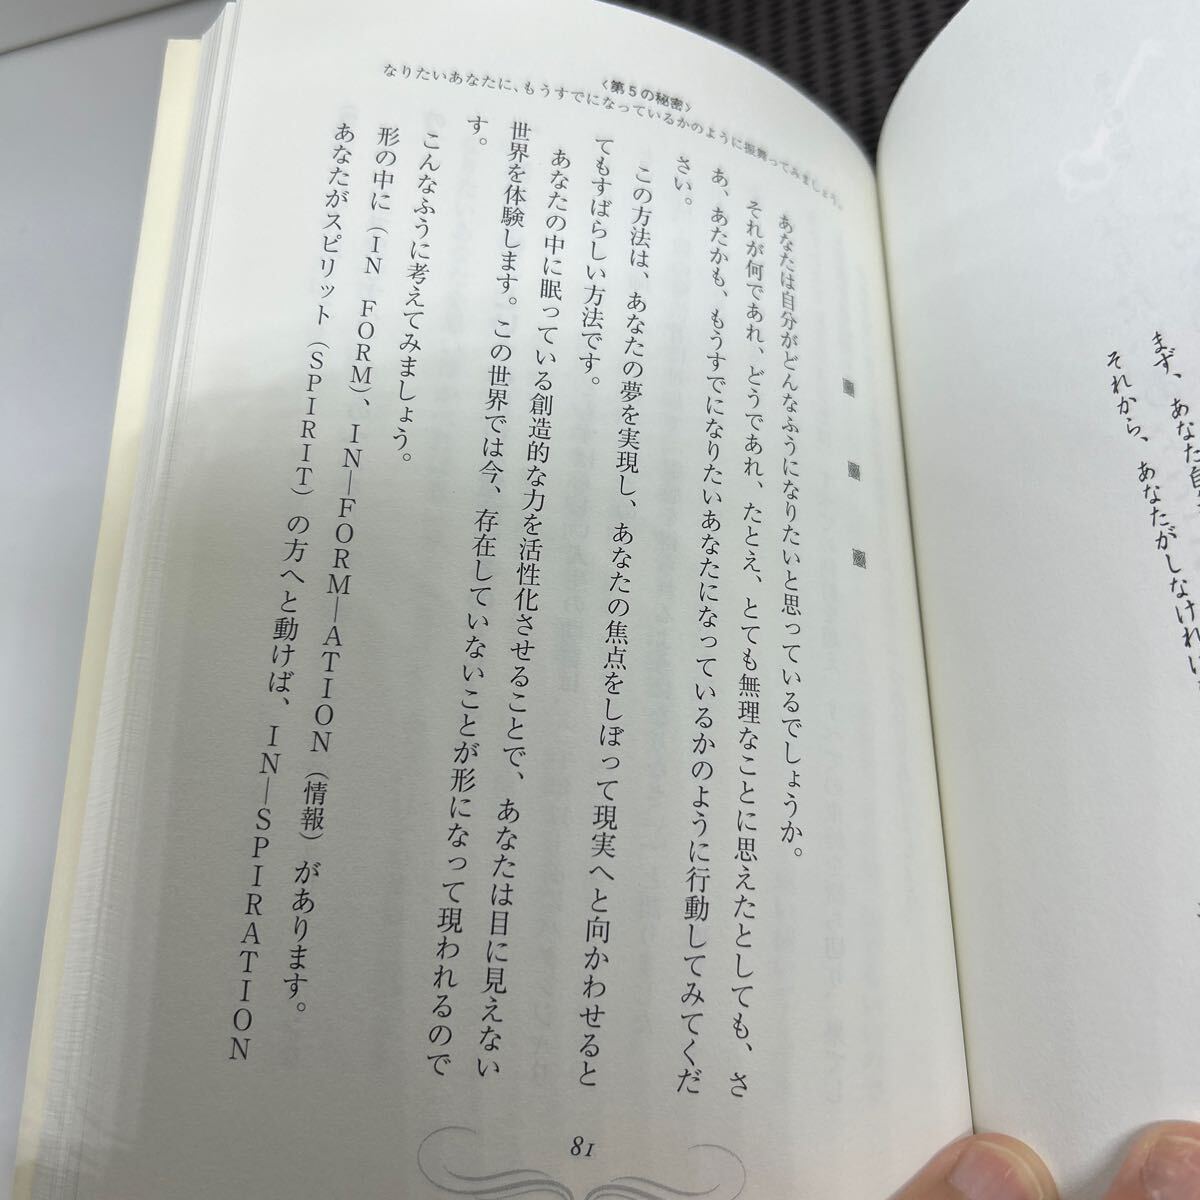 まず、あなた自
それから、あなたがしなければ
〈第5の秘密〉
なりたいあなたに、もうすでになっているかのように振舞ってみましょう。
あなたは自分がどんなふうになりたいと思っているでしょうか。
それが何であれ、どうであれ、たとえ、とても無理なことに思えたとしても、さ
あ、あたかも、もうすでになりたいあなたになっているかのように行動してみてくだ
さい。
この方法は、あなたの夢を実現し、あなたの焦点をしぼって現実へと向かわせると
てもすばらしい方法です。
あなたの中に眠っている創造的な力を活性化させることで、あなたは目に見えない
世界を体験します。この世界では今、存在していないことが形になって現われるので
す。
こんなふうに考えてみましょう。
形の中に（IN FORM）、IN—FORM—ATION（情報）があります。
あなたがスピリット（SPIRIT）の方へと動けば、IN—SPIRATION
81